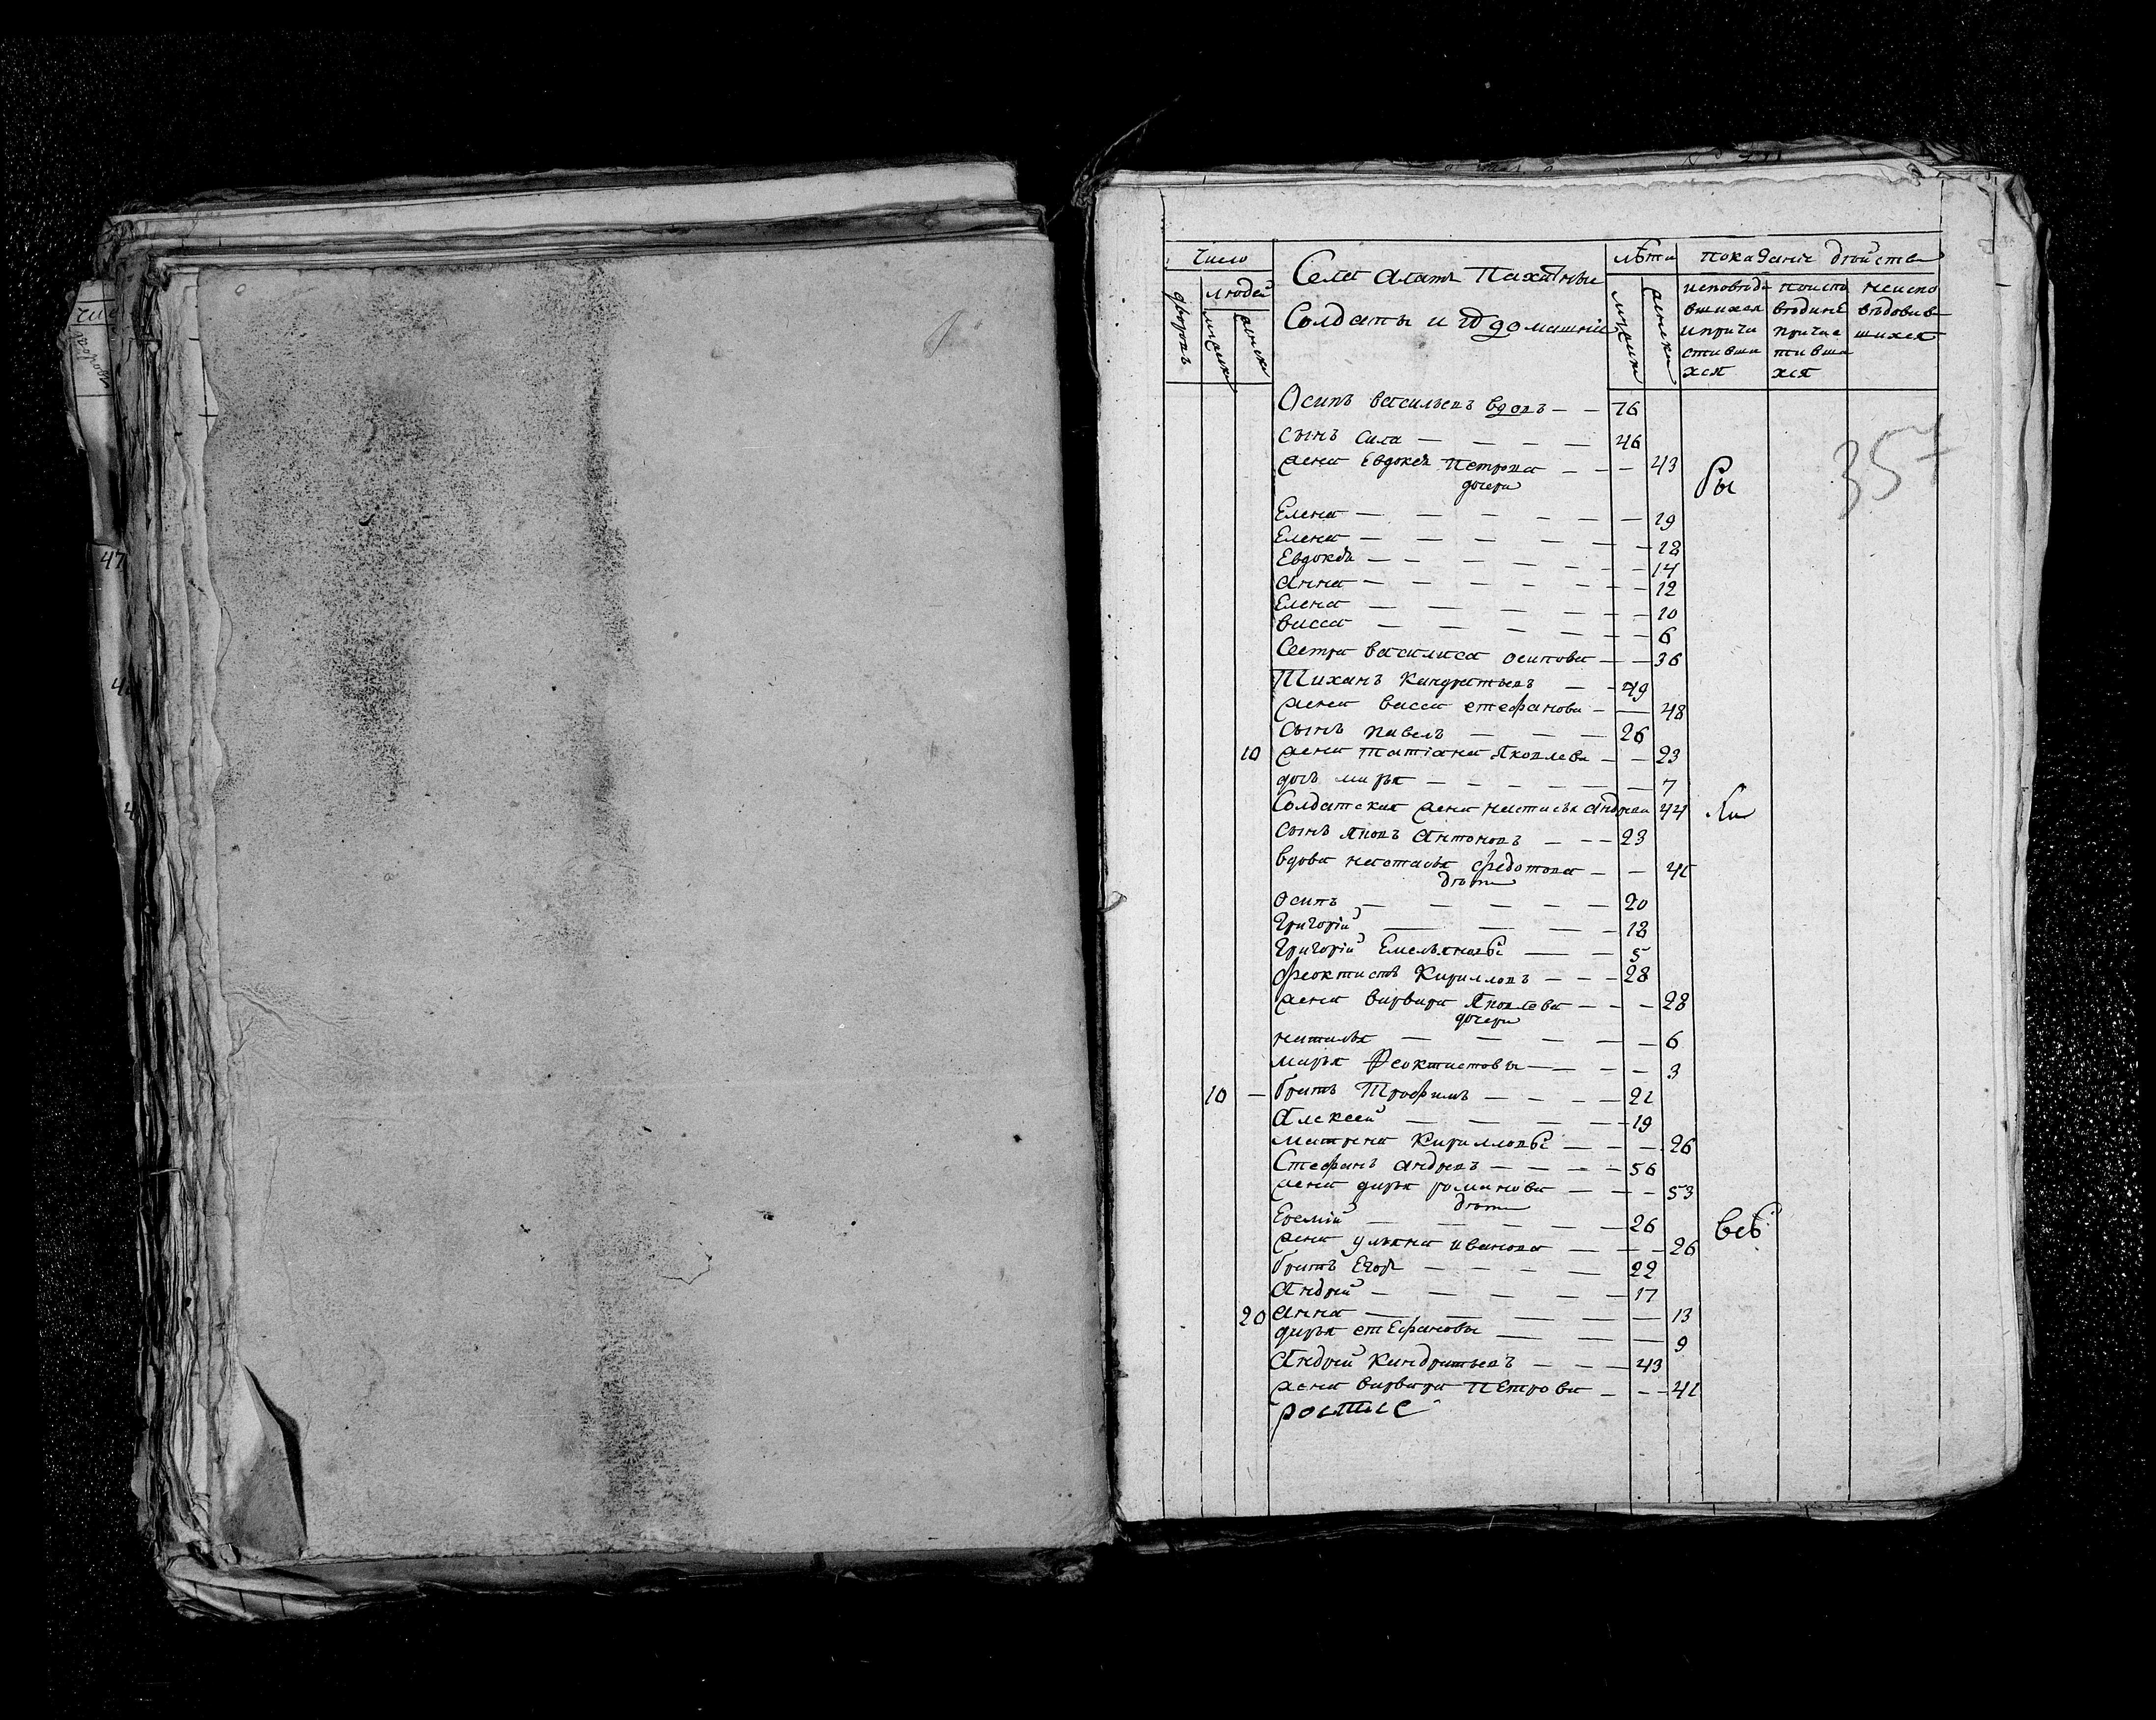 число
лѣта
показаніе дѣйства
Села Алатъ Пахатные
Солдаты и ихъ домашніе
людей
дворовъ
мужска
женска
мужска
женска
исповѣда
вшихся
и прича
стивши
хся
поиспо
вѣдине
причас
тивши
хся
неиспо
вѣдовав
шихся
Осипъ васильевъ вдовъ — — 76
сынъ сила — — — — 46
жена Евдокея Петрова — — — 43
дочери
Ры
357
Елена — — — — — — 19
Елена — — — — — — 18
Евдокѣя — — — — — — 14
анна — — — — — — 12
Елена — — — — — — 10
васса — — — — — — 6
Сестра василиса осипова — — 36
Тиханъ Кандратьевъ — — 49
жена васса стефанова — — 48
сынъ павелъ — — — 26
10 жена татіана Яковлева — — 23
дочь марья — — — — — 7
Солдатская жена настасья андреева 44
Ли
сынъ яковъ Антоновъ — — — 23
вдова настасья федотова — — 41
дѣти
осипъ — — — — — 20
Григорій — — — — 18
Григорій Емельяновы — — 5
феоктистъ Кирилловъ — — — 28
жена варвара Яковлева — — — 28
дочери
наталья — — — — — 6
марья Феоктистовы — — — — 3
10 — братъ Трофимъ — — — — 21
Алексей — — — — 19
матрена Кирилловы — — — 26
Стефанъ андреевъ — — — — 56
жена дарья романова — — — 53
дѣти
Еремій — — — — — 26
всѣ
жена ульяна иванова — — — 26
братъ Егоръ — — — — 22
Андрей — — — — — 17
20 анна — — — — — 13
дарья стефановы — — — 9
Андрей Кандратьевъ — — — 43
жена варвара петрова — — — 41
росписѣ
47